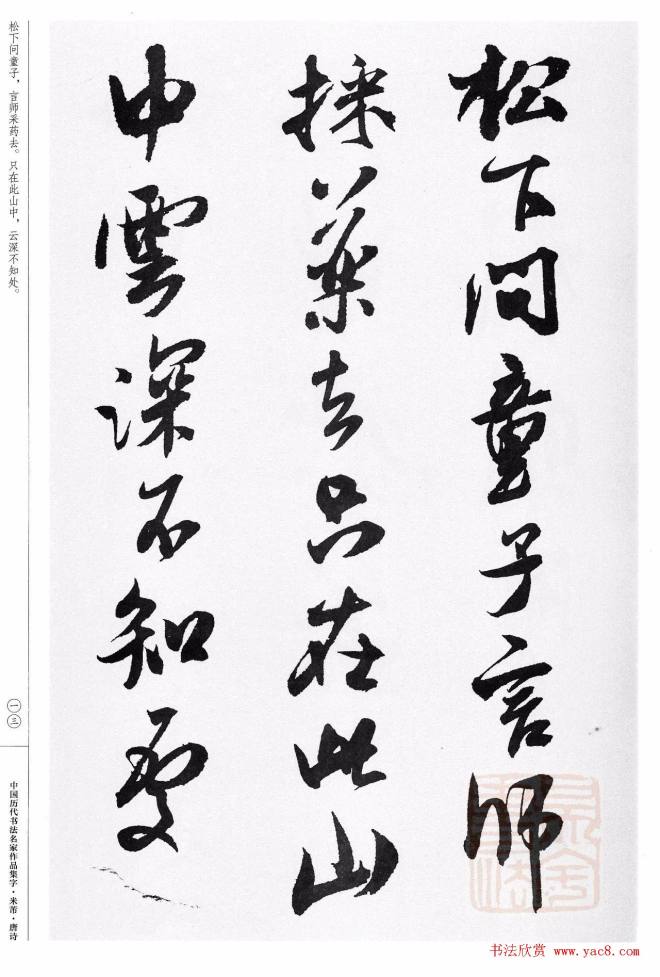 松下问童子言师
採藥去只在此山
中雲深不知處
松下问童子，言师采药去。只在此山中，云深不知处。
一三
中国历代书法名家作品集字·米芾·唐诗
书法欣赏 www.yac8.com